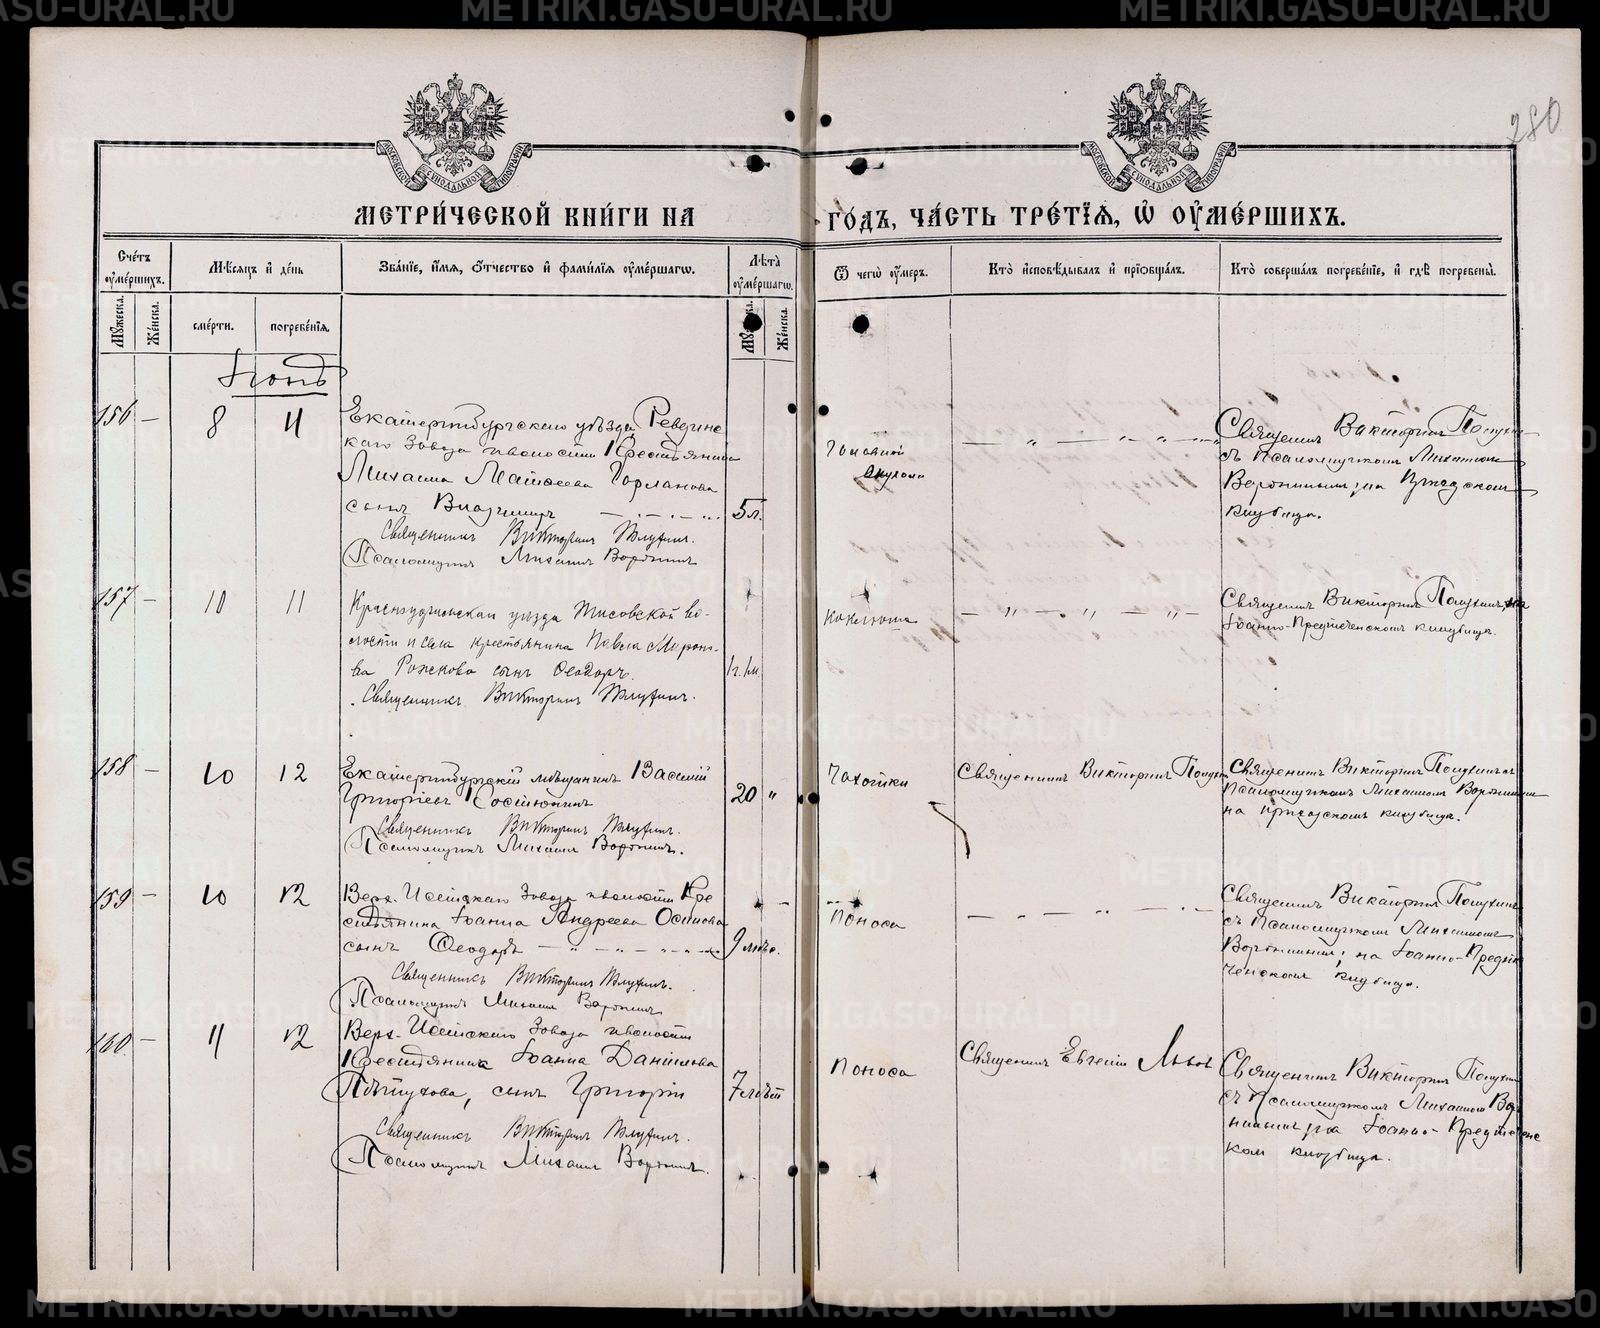 METRIKI.GASO-URAL.RU
280
МЕТРИ́ЧЕСКОЙ КНИ́ГИ НА
ГО́ДЪ, ЧА́СТЬ ТРЕ́ТІѦ, Ѽ ОУ҆МЕ́РШИХЪ.
Сче́тъ оу҆ме́ршихъ.
Мꙋ́жеска.
Же́нска.
Мѣ́сяцъ и҆ де́нь
сме́рти.
погребе́нїѧ.
Зва́нїе, и҆́мѧ, ѻ҆́тчество и҆ фами́лїѧ оу҆ме́ршагѡ.
Лѣ́та оу҆ме́ршагѡ.
Мꙋ́жеска.
Же́нска.
Ѿ чегѡ̀ оу҆́меръ.
Кто̀ и҆сповѣ́дывалъ и҆ прїѡбща́лъ.
Кто̀ соверша́лъ погребе́нїе, и҆ гдѣ̀ погребены̀.
Іюнь
156 — 8 11
Екатеринбургскаго уѣзда Ревдинс
каго Завода и волости Крестьянина
Михаила Матѳеева Горланова
сынъ Владимиръ
5 л.
Священникъ Викторинъ
Псаломщикъ Михаилъ Воронинъ
Головной
опухоли
Священникъ Викторинъ
съ Псаломщикомъ Михаиломъ
Воронинымъ, на Приходскомъ
кладбищѣ.
157 — 10 11
Красноуфимскаго уѣзда Тисовской во-
лости и села крестьянина Павла Мироно-
ва Рожкова сынъ Ѳеодоръ.
1 г. 1 м.
Священникъ Викторинъ
Коклюша
Священникъ Викторинъ на
Іоанно-Предтеченскомъ кладбищѣ.
158 — 10 12
Екатеринбургскій мѣщанинъ Василій
Григоріевъ
20 "
Священникъ Викторинъ
Псаломщикъ Михаилъ Воронинъ.
Чахотки
Священникъ Викторинъ
Священникъ Викторинъ съ
Псаломщикомъ Михаиломъ Воронинымъ
на приходскомъ кладбищѣ.
159 — 10 12
Верх-Исетскаго Завода и волости Кре
стьянина Іоанна Андреева Осипова
сынъ Ѳеодоръ
9 мѣс.
Священникъ Викторинъ
Псаломщикъ Михаилъ Воронинъ
Поноса
Священникъ Викторинъ
съ Псаломщикомъ Михаиломъ
Воронинымъ, на Іоанно-Предте
ченскомъ кладбищѣ.
160 — 11 12
Верх-Исетскаго Завода и волости
Крестьянина Іоанна Данилова
Пѣтухова, сынъ Григорій
7 лѣтъ
Священникъ Викторинъ
Псаломщикъ Михаилъ Воронинъ.
Поноса
Священникъ Евгеній Львовъ
Священникъ Викторинъ
съ Псаломщикомъ Михаиломъ Воро
нинымъ на Іоанно-Предтеченс
комъ кладбищѣ.